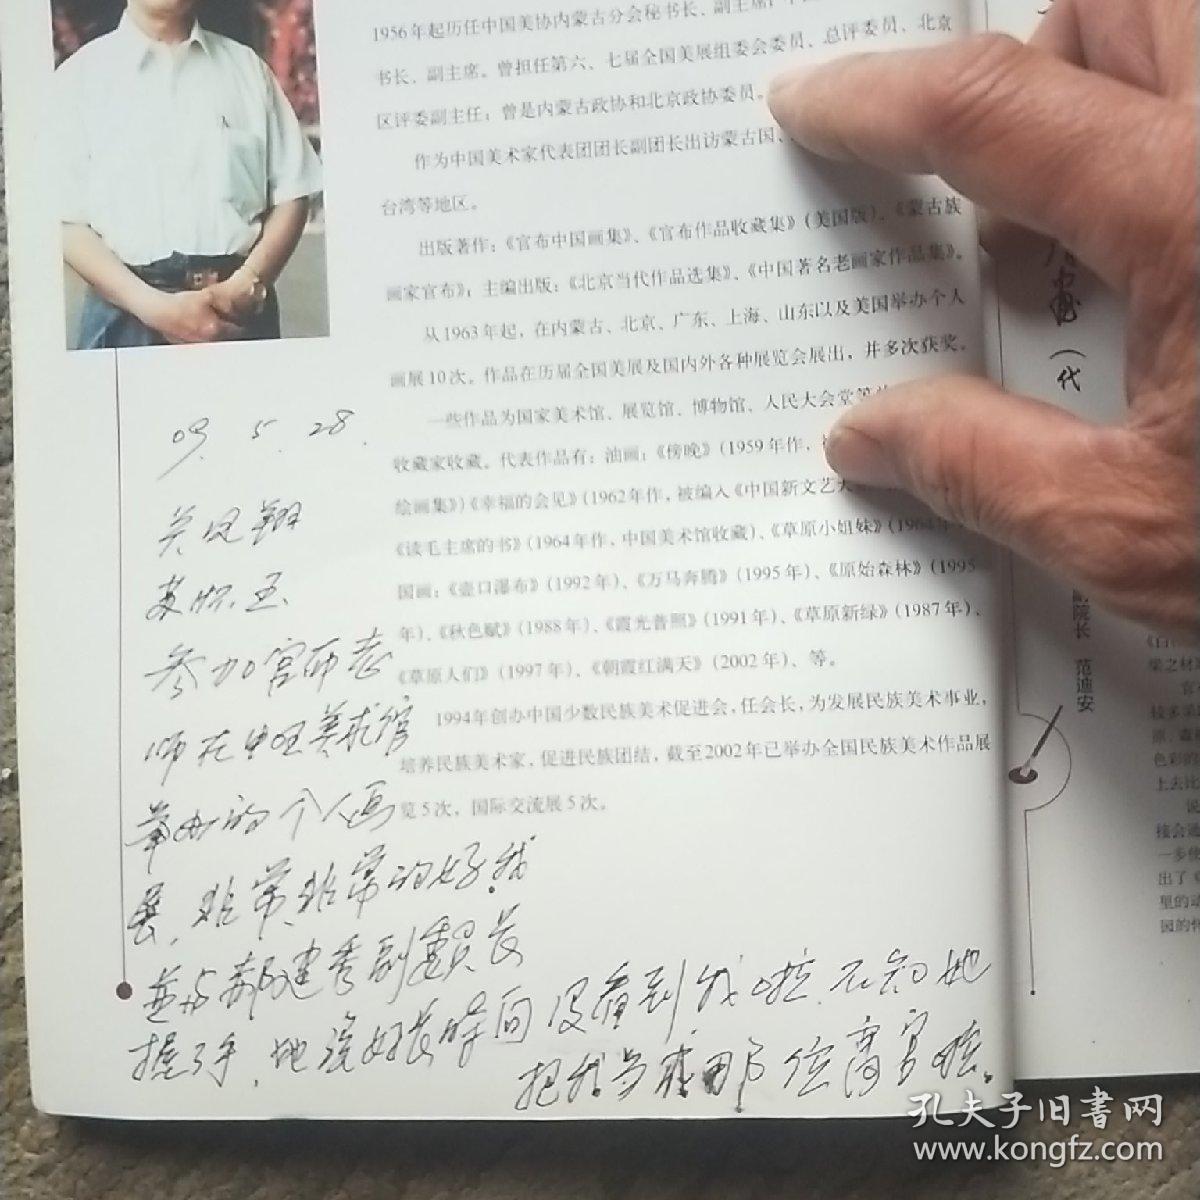 1956年起历任中国美协内蒙古分会秘书长、副主席,中
书长、副主席。曾担任第六、七届全国美展组委会委员、总评委员、北京
区评委副主任;曾是内蒙古政协和北京政协委员。
作为中国美术家代表团团长副团长出访蒙古国、
台湾等地区。
出版著作:《官布中国画集》、《官布作品收藏集》(美国版)。《蒙古族
画家官布》;主编出版:《北京当代作品选集》、《中国著名老画家作品集》。
从1963年起,在内蒙古、北京、广东、上海、山东以及美国举办个人
画展10次。作品在历届全国美展及国内外各种展览会展出,并多次获奖。
一些作品为国家美术馆、展览馆、博物馆、人民大会堂等
收藏家收藏。代表作品有:油画:《傍晚》(1959年作,
绘画集》)《幸福的会见》(1962年作,被编入《中国新文艺大
《读毛主席的书》(1964年作,中国美术馆收藏)、《草原小姐妹》(1964年
国画:《壶口瀑布》(1992年)、《万马奔腾》(1995年)、《原始森林》(1995
年)、《秋色赋》(1988年)、《霞光普照》(1991年)、《草原新绿》(1987年)、
《草原人们》(1997年)、《朝霞红满天》(2002年)、等。
1994年创办中国少数民族美术促进会,任会长,为发展民族美术事业,
培养民族美术家,促进民族团结,截至2002年已举办全国民族美术作品展
览5次,国际交流展5次。
09. 5. 28.
关凤翔
苏怀玉
参加官布老
师在中国美术馆
举办的个人画
展,非常非常的好。我
并与郝建秀副委员长
握了手,她说好长时间没看到我啦,不知她
把我当成那位高官啦。
(代
副院长 范迪安
《百
梁之材
官
较多采
原、森
色彩的
上去比
说
接会进
一步使
出了《
里的动
园的怀
孔夫子旧书网
www.kongfz.com